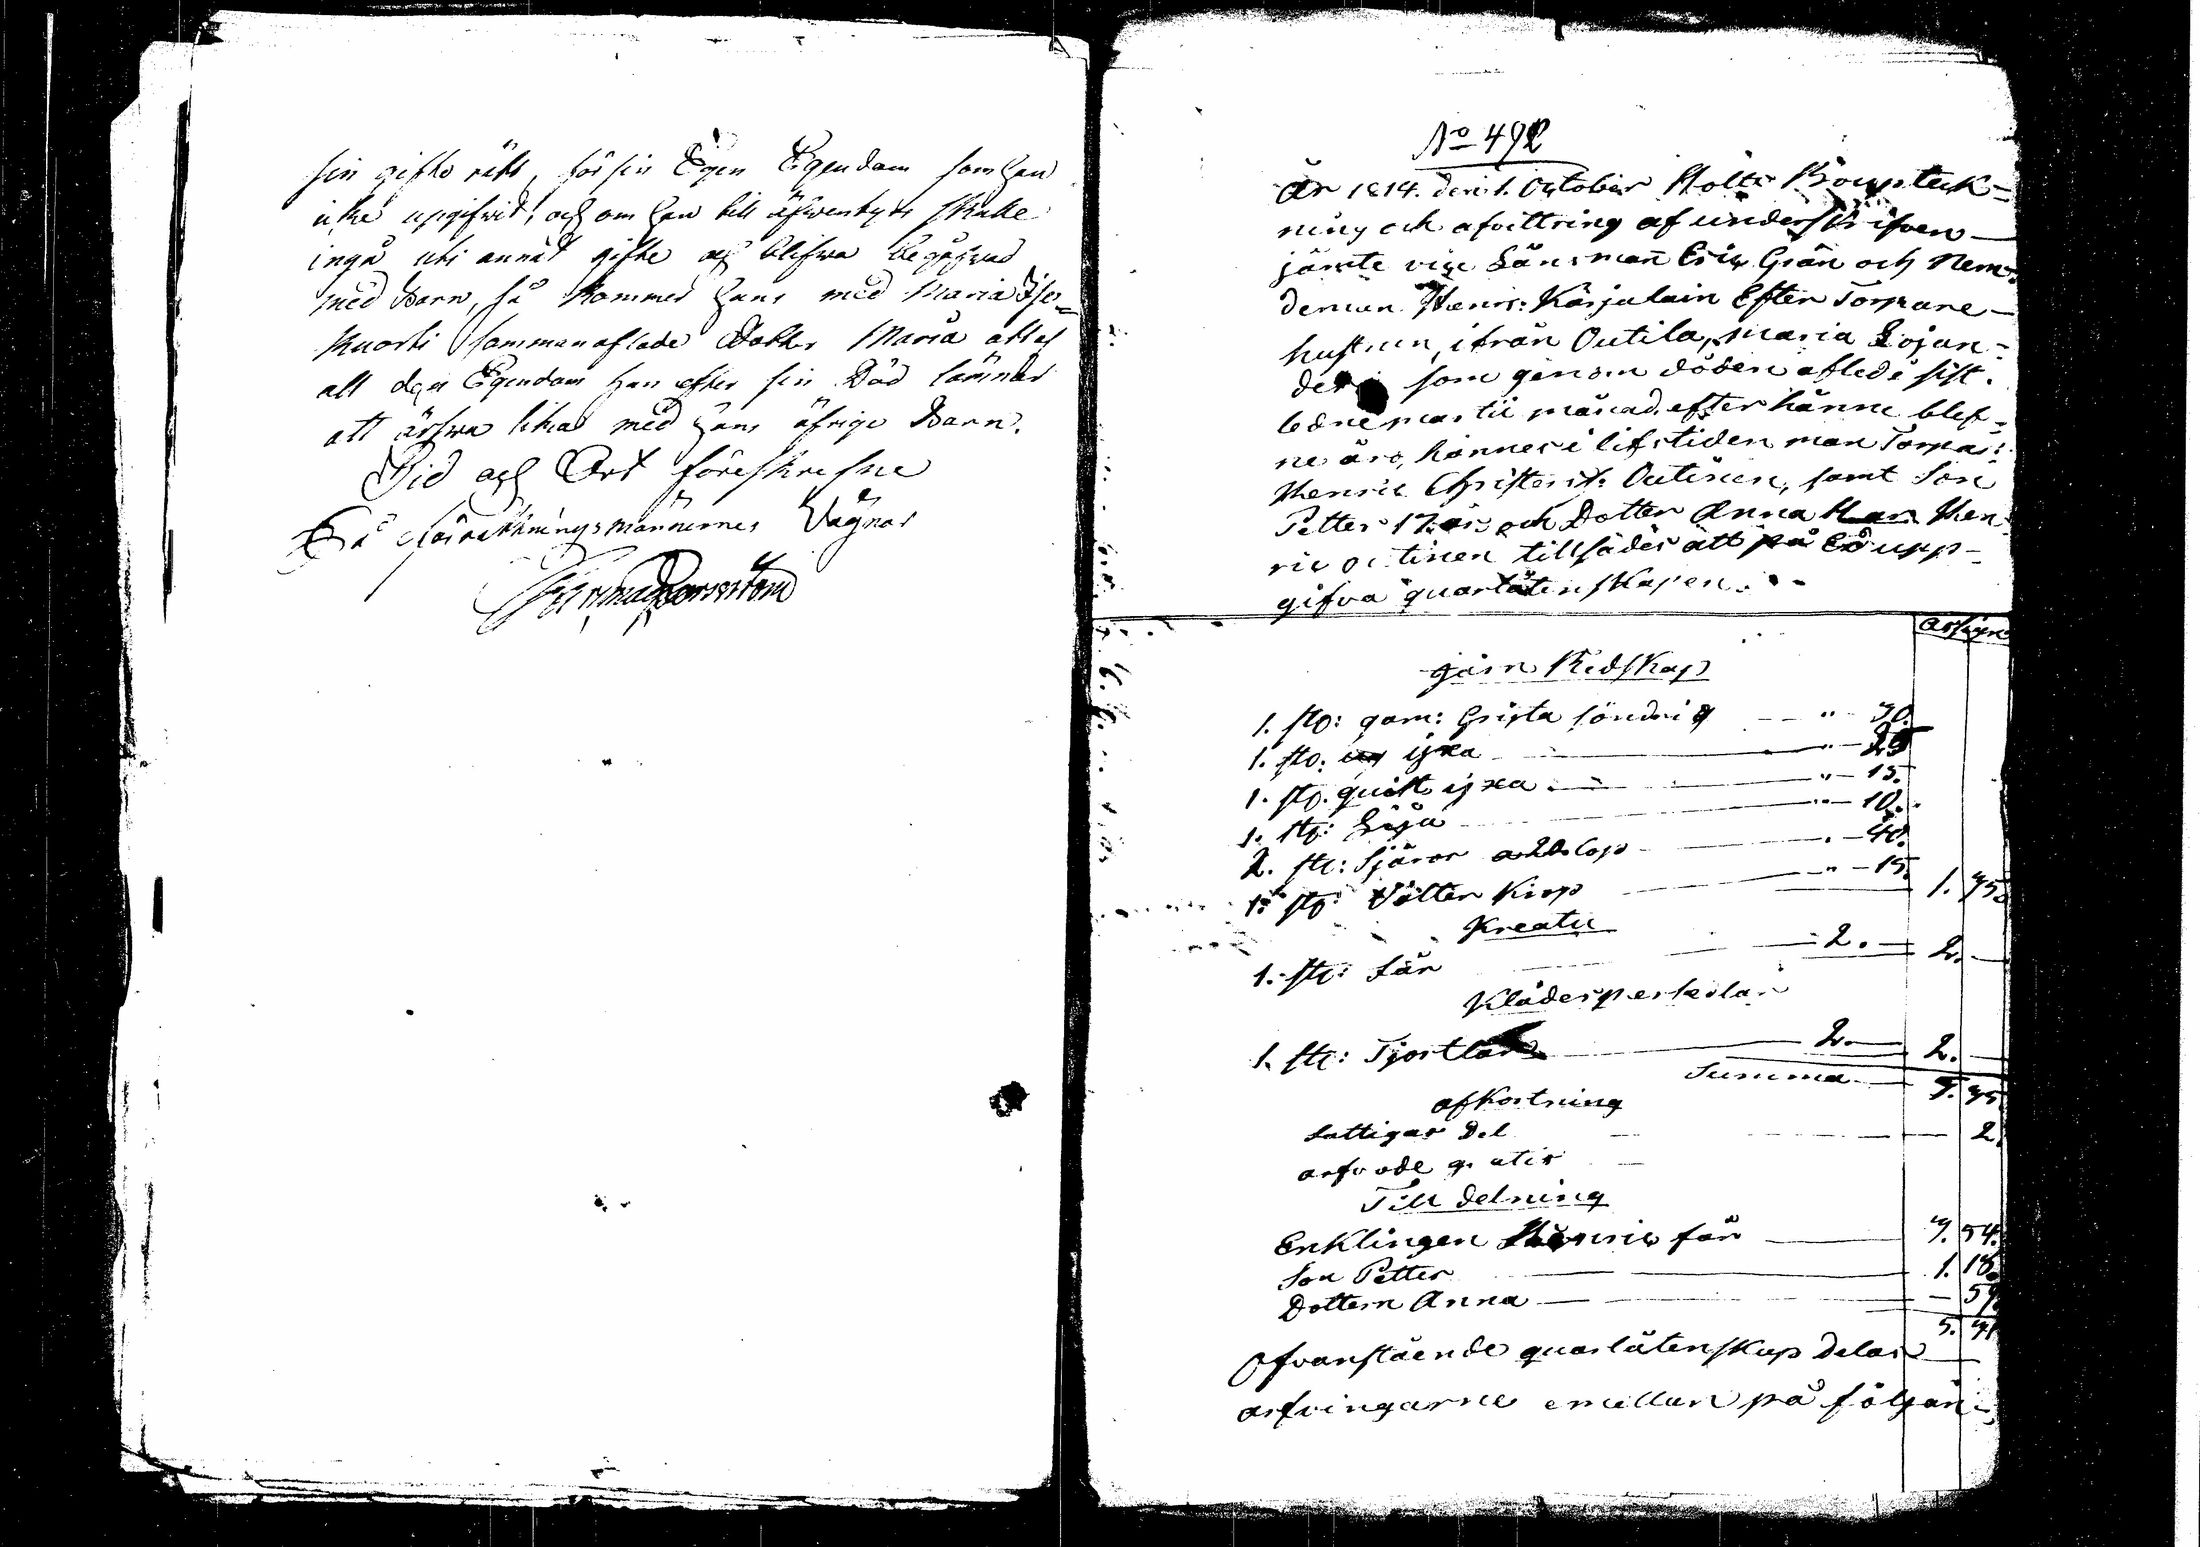 sin gifto rätt, för sin Egen Egendom som han
icke upgifwit, och om han till äfwentyrs skulle
ingå uti annat gifte och blifwa begåfwad
med Barn, så kommer hans med Maria
sammanaflade Dotter Maria att af
all den Egendom han efter sin Död lämnar
att ärfwa lika med hans öfrige Barn.
Tid och Ort föreskrefne
På Förrättningsmännernes Vägnar
No 492
År 1814. den 1. October Höltz Bouptek-
ning och afvittring af underskrifven
jämte vice Länsman Eric Grån och Nem-
deman Henr: Karjalain Efter Torpare-
hustrun, ifrån Outila, Maria Lojan-
der som genom döden afled i sist-
ledne martii månad. efter hänne blef-
ne äro, hännes i lifstiden man Torpar:
Henric Christers: Outinen, samt Son
Petter 17. år, och Dotter Anna Hen
ric Outinen tillsades att på Ed upp-
gifva quarlåtenskapen.
järn Redskap
1. st: gam: Gryta söndrig " 70.
1. st: yxa " 25
1. st. quist yxa " 15.
1. st: Lija " 10.
2. st: Sjäror " 40.
1. st: " 15. 1. 75.
Kreatu
1. st: Får 2. 2.
Klädespersedlar
1. st: Tjortlar 2. 2.
Summa 5. 75
afkortning
fattigas Del 2.
arfvode gratis
Till delning
Enklingen Henric får 3. 54.
Son Petter 1. 18.
Dottern Anna 59.
5. 71
Ofvanstående quarlåtenskap delas
arfvingarne emellan på följan-